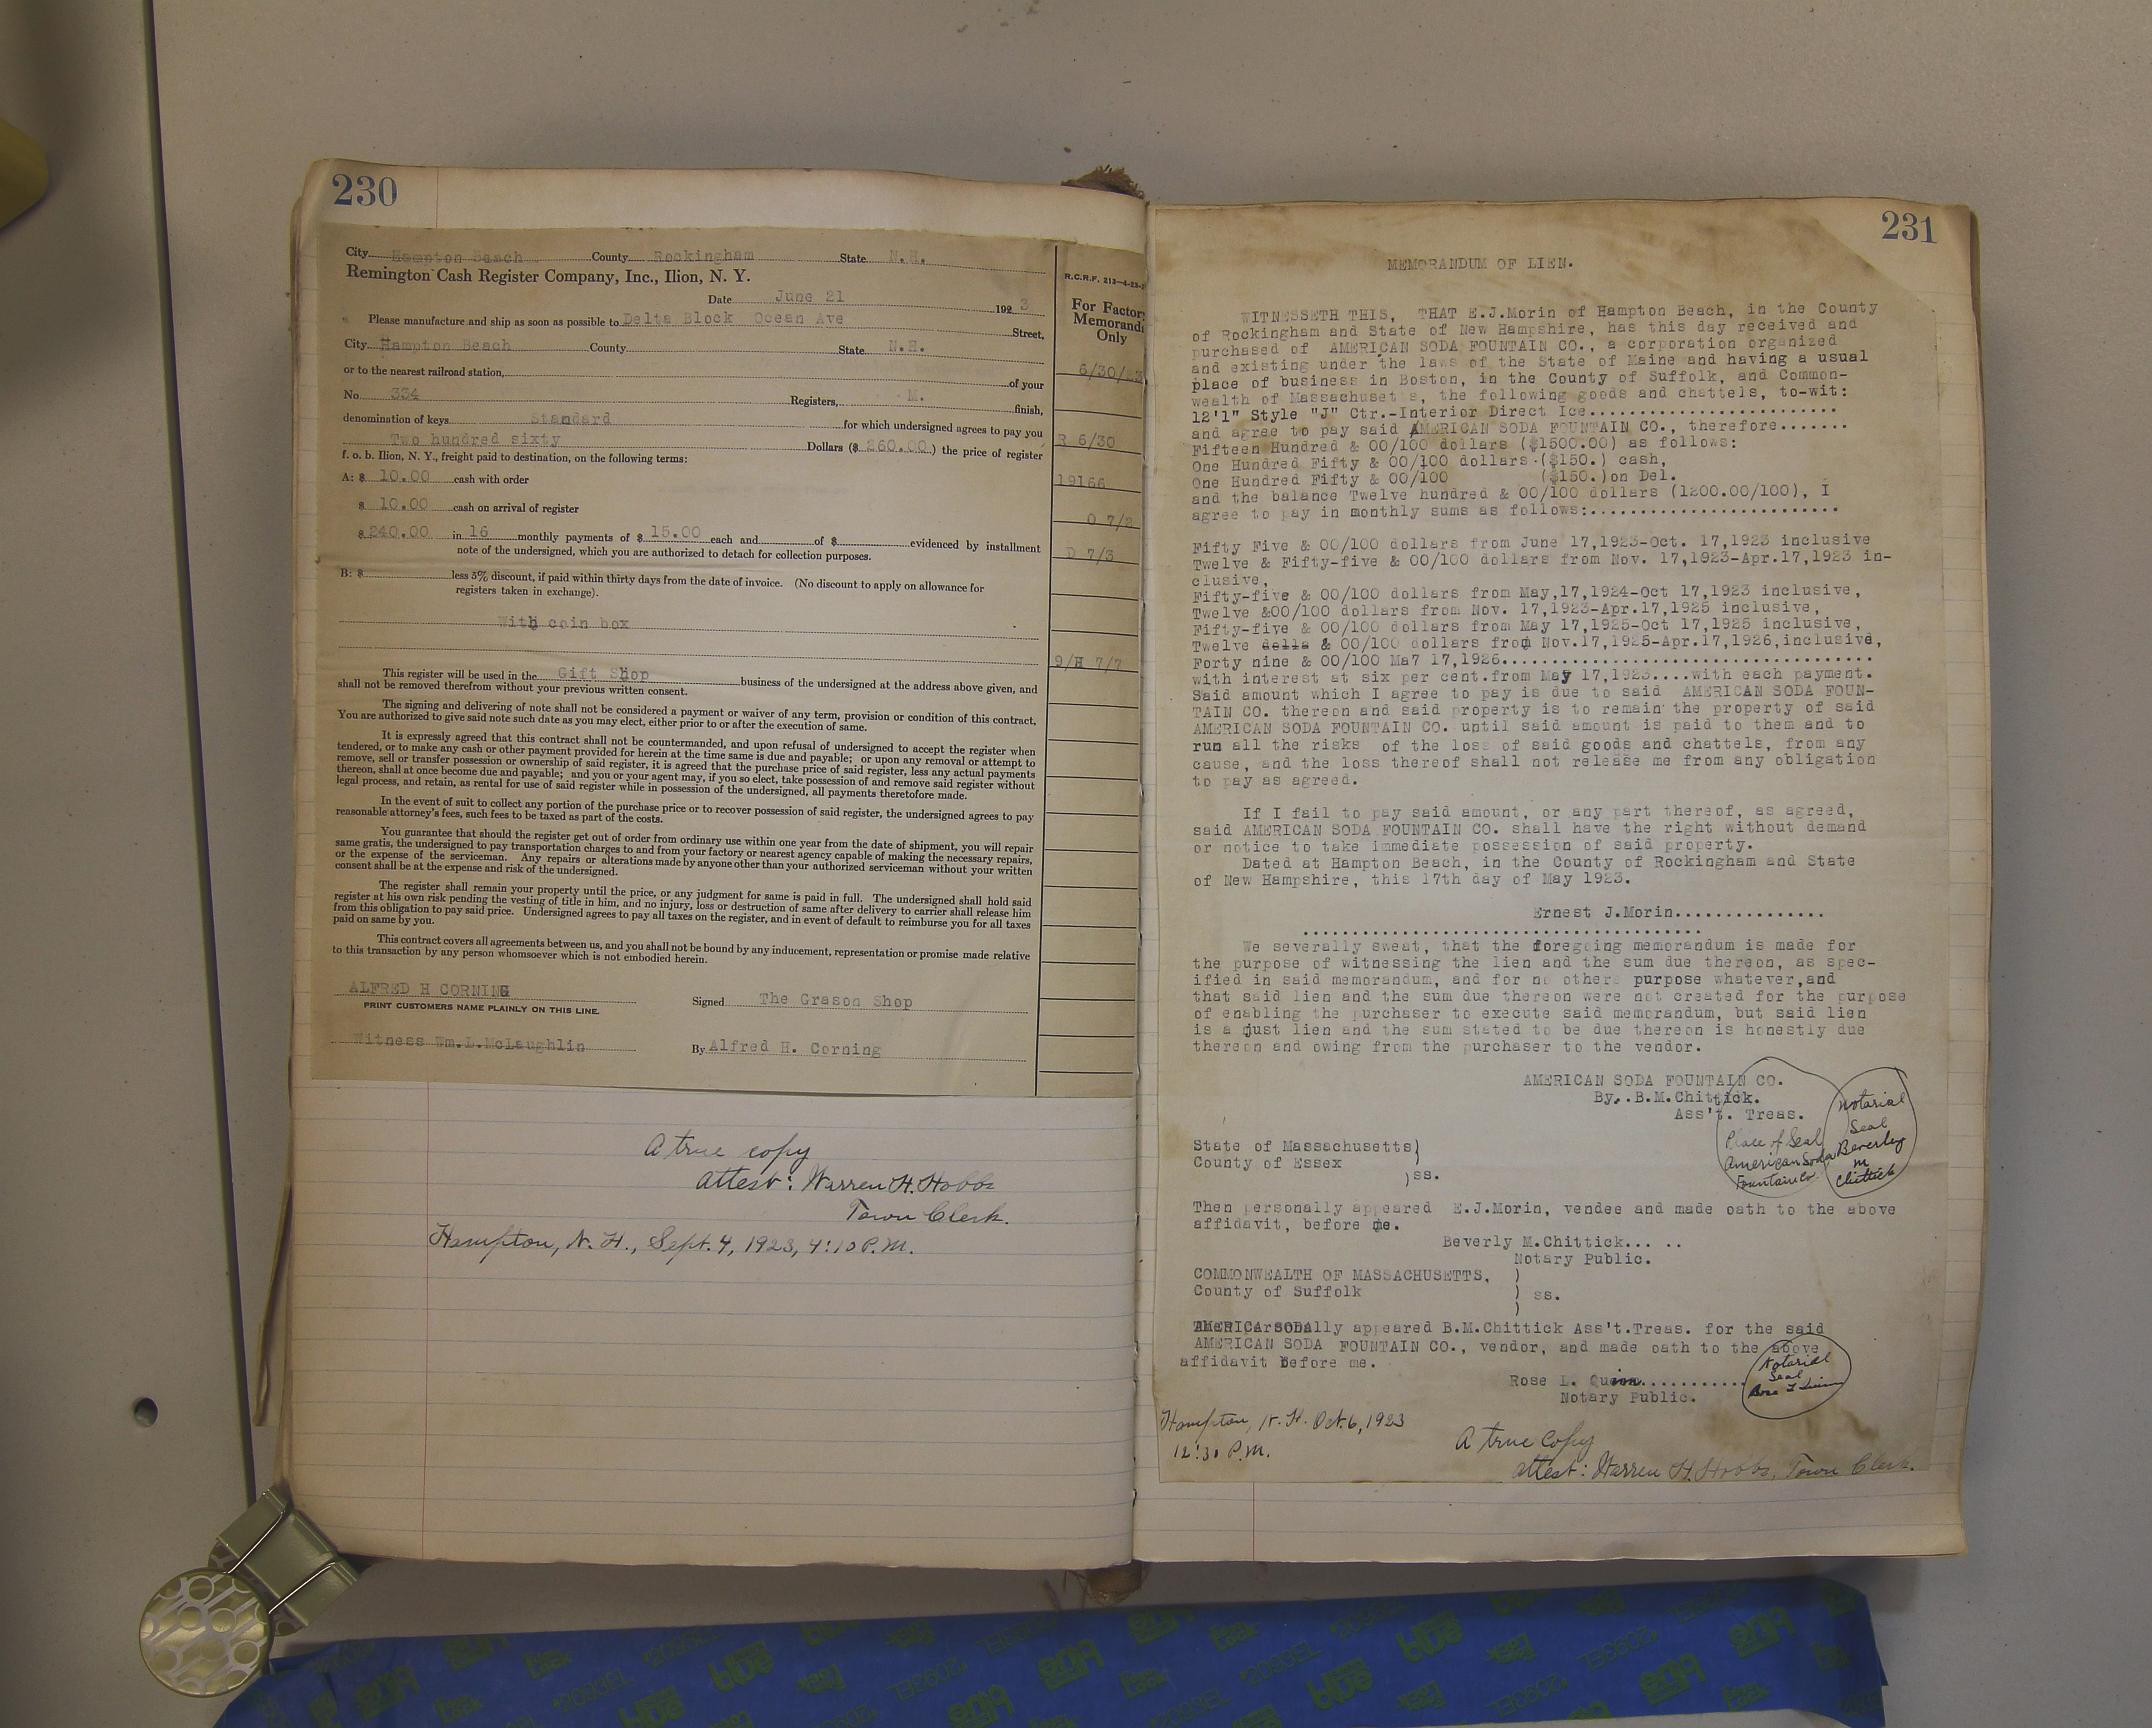 230
City Hampton Beach County Rockingham State N.H.
Remington Cash Register Company, Inc., Ilion, N. Y.
Date June 21 192 3
Please manufacture and ship as soon as possible to Delta Block Ocean Ave Street,
City Hampton Beach County State N.H.
or to the nearest railroad station, of your
No. 334 Registers, M. finish,
denomination of keys Standard for which undersigned agrees to pay you
Two hundred sixty Dollars ($ 260.00 ) the price of register
f. o. b. Ilion, N. Y., freight paid to destination, on the following terms:
A: $ 10.00 cash with order
$ 10.00 cash on arrival of register
$ 240.00 in 16 monthly payments of $ 15.00 each and of $ evidenced by installment
note of the undersigned, which you are authorized to detach for collection purposes.
B: $ less 5% discount, if paid within thirty days from the date of invoice. (No discount to apply on allowance for
registers taken in exchange).
With coin box
This register will be used in the Gift Shop business of the undersigned at the address above given, and
shall not be removed therefrom without your previous written consent.
The signing and delivering of note shall not be considered a payment or waiver of any term, provision or condition of this contract,
You are authorized to give said note such date as you may elect, either prior to or after the execution of same.
It is expressly agreed that this contract shall not be countermanded, and upon refusal of undersigned to accept the register when
tendered, or to make any cash or other payment provided for herein at the time same is due and payable; or upon any removal or attempt to
remove, sell or transfer possession or ownership of said register, it is agreed that the purchase price of said register, less any actual payments
thereon, shall at once become due and payable; and you or your agent may, if you so elect, take possession of and remove said register without
legal process, and retain, as rental for use of said register while in possession of the undersigned, all payments theretofore made.
In the event of suit to collect any portion of the purchase price or to recover possession of said register, the undersigned agrees to pay
reasonable attorney's fees, such fees to be taxed as part of the costs.
You guarantee that should the register get out of order from ordinary use within one year from the date of shipment, you will repair
same gratis, the undersigned to pay transportation charges to and from your factory or nearest agency capable of making the necessary repairs,
or the expense of the serviceman. Any repairs or alterations made by anyone other than your authorized serviceman without your written
consent shall be at the expense and risk of the undersigned.
The register shall remain your property until the price, or any judgment for same is paid in full. The undersigned shall hold said
register at his own risk pending the vesting of title in him, and no injury, loss or destruction of same after delivery to carrier shall release him
from this obligation to pay said price. Undersigned agrees to pay all taxes on the register, and in event of default to reimburse you for all taxes
paid on same by you.
This contract covers all agreements between us, and you shall not be bound by any inducement, representation or promise made relative
to this transaction by any person whomsoever which is not embodied herein.
ALFRED H CORNING
PRINT CUSTOMERS NAME PLAINLY ON THIS LINE.
Signed The Grason Shop
Witness Wm.L.McLaughlin
By Alfred H. Corning
R.C.R.F. 213-4-23-
For Factory
Memoranda
Only
6/30/23
R 6/30
19166
O 7/2
D 7/3
9/H 7/7
A true copy
Attest: Warren H. Hobbs
Town Clerk.
Hampton, N. H., Sept. 4, 1923, 4:10 P.M.
231
MEMORANDUM OF LIEN.
WITNESSETH THIS, THAT E.J.Morin of Hampton Beach, in the County
of Rockingham and State of New Hampshire, has this day received and
purchased of AMERICAN SODA FOUNTAIN CO., a corporation organized
and existing under the laws of the State of Maine and having a usual
place of business in Boston, in the County of Suffolk, and Common-
wealth of Massachusetts, the following goods and chattels, to-wit:
12'1" Style "J" Ctr.-Interior Direct Ice.........................
and agree to pay said AMERICAN SODA FOUNTAIN CO., therefore.......
Fifteen Hundred & 00/100 dollars ($1500.00) as follows:
One Hundred Fifty & 00/100 dollars ($150.) cash,
One Hundred Fifty & 00/100 ($150.)on Del.
and the balance Twelve hundred & 00/100 dollars (1200.00/100), I
agree to pay in monthly sums as follows:.........................
Fifty Five & 00/100 dollars from June 17,1923-Oct. 17,1923 inclusive
Twelve & Fifty-five & 00/100 dollars from Nov. 17,1923-Apr.17,1923 in-
clusive,
Fifty-five & 00/100 dollars from May,17,1924-Oct 17,1923 inclusive,
Twelve &00/100 dollars from Nov. 17,1923-Apr.17,1925 inclusive,
Fifty-five & 00/100 dollars from May 17,1925-Oct 17,1925 inclusive,
Twelve dolls & 00/100 dollars from Nov.17,1925-Apr.17,1926,inclusive,
Forty nine & 00/100 Ma7 17,1926.....................................
with interest at six per cent.from May 17,1923....with each payment.
Said amount which I agree to pay is due to said AMERICAN SODA FOUN-
TAIN CO. thereon and said property is to remain the property of said
AMERICAN SODA FOUNTAIN CO. until said amount is paid to them and to
run all the risks of the loss of said goods and chattels, from any
cause, and the loss thereof shall not release me from any obligation
to pay as agreed.
If I fail to pay said amount, or any part thereof, as agreed,
said AMERICAN SODA FOUNTAIN CO. shall have the right without demand
or notice to take immediate possession of said property.
Dated at Hampton Beach, in the County of Rockingham and State
of New Hampshire, this 17th day of May 1923.
Ernest J.Morin...............
........................................
We severally sweat, that the foregoing memorandum is made for
the purpose of witnessing the lien and the sum due thereon, as spec-
ified in said memorandum, and for no others purpose whatever,and
that said lien and the sum due thereon were not created for the purpose
of enabling the purchaser to execute said memorandum, but said lien
is a just lien and the sum stated to be due thereon is honestly due
thereon and owing from the purchaser to the vendor.
AMERICAN SODA FOUNTAIN CO.
By..B.M.Chittick.
Ass't. Treas.
Place of Seal
American Soda
Fountain Co
Notarial
Seal
Beverley
M
Chittick
State of Massachusetts)
County of Essex
)ss.
Then personally appeared E.J.Morin, vendee and made oath to the above
affidavit, before me.
Beverly M.Chittick... ..
Notary Public.
COMMONWEALTH OF MASSACHUSETTS, )
County of Suffolk ) ss.
)
ally appeared B.M.Chittick Ass't.Treas. for the said
AMERICAN SODA FOUNTAIN CO., vendor, and made oath to the above
affidavit before me.
Rose L. ...........
Notary Public.
Notarial
Seal
Hampton, N. H. Oct. 6, 1923
12:30 P.M.
A true Copy
Attest: Warren H. Hobbs, Town Clerk.